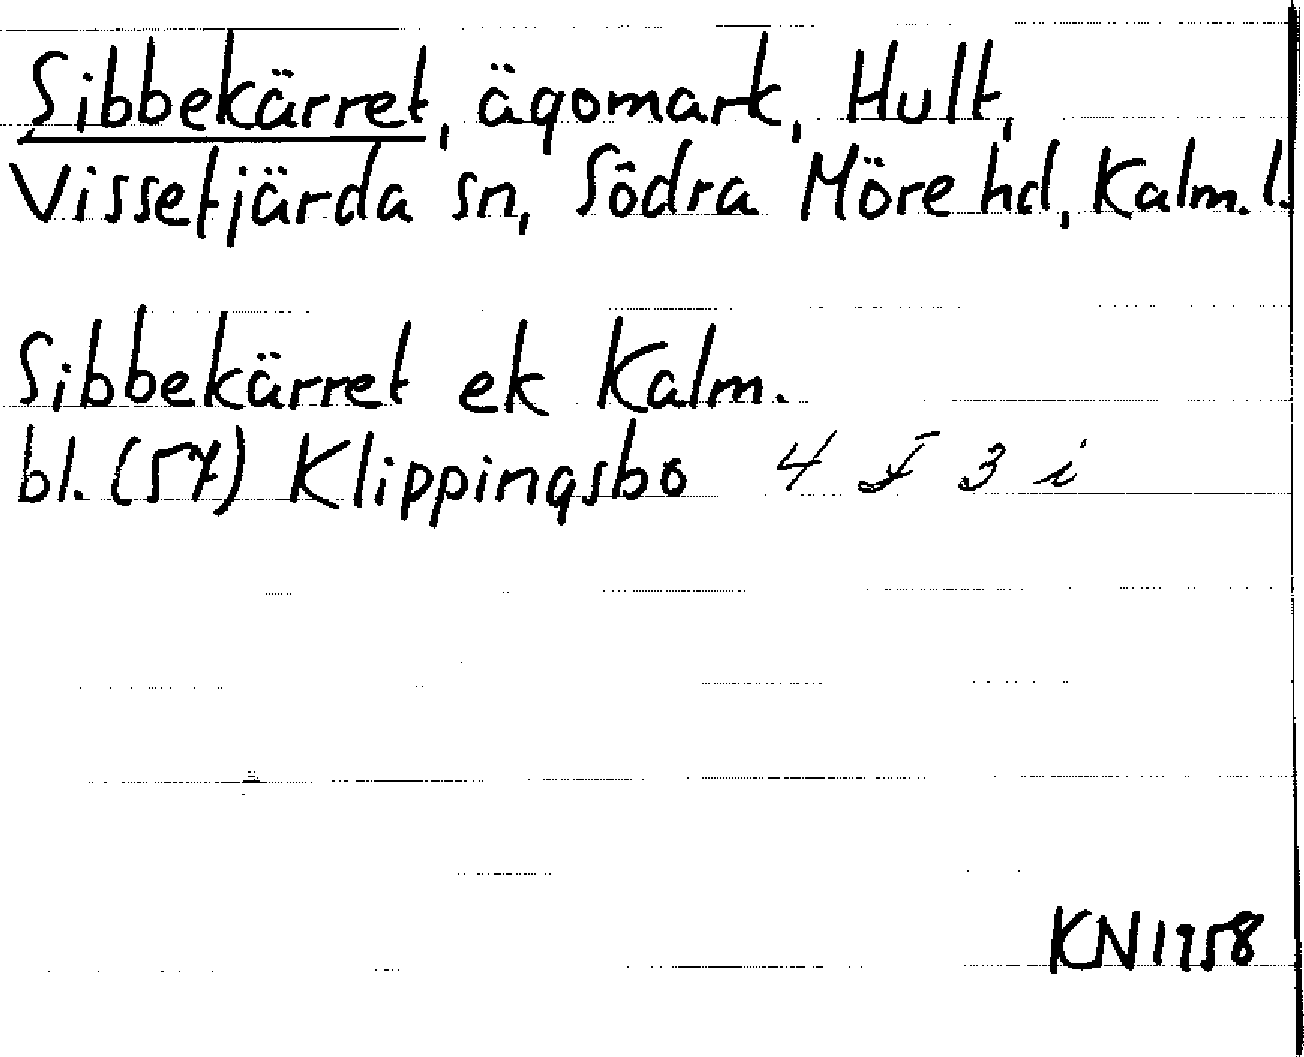 Sibbekärret, ägomark, Hult,
Vissefjärda sn, Södra Möre hd, Kalm. l.
Sibbekärret ek Kalm.
bl. (57) Klippingsbo 4 F 3 i
KN 1958